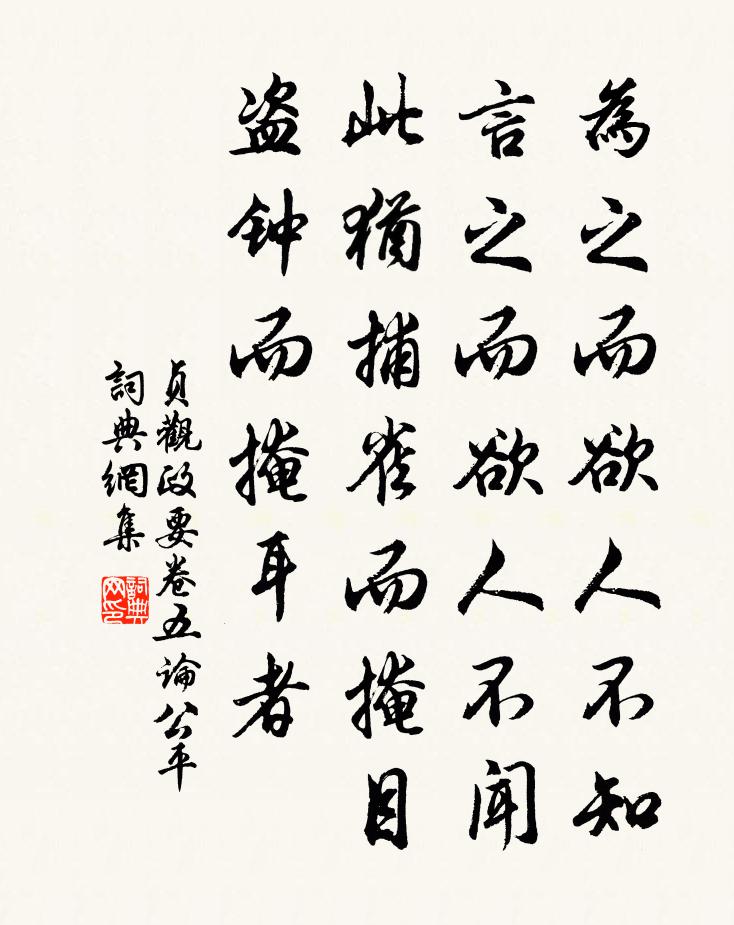 為之而欲人不知
言之而欲人不聞
此猶捕雀而掩目
盗钟而掩耳者
貞觀政要卷五論公平
詞典網集
詞典网印